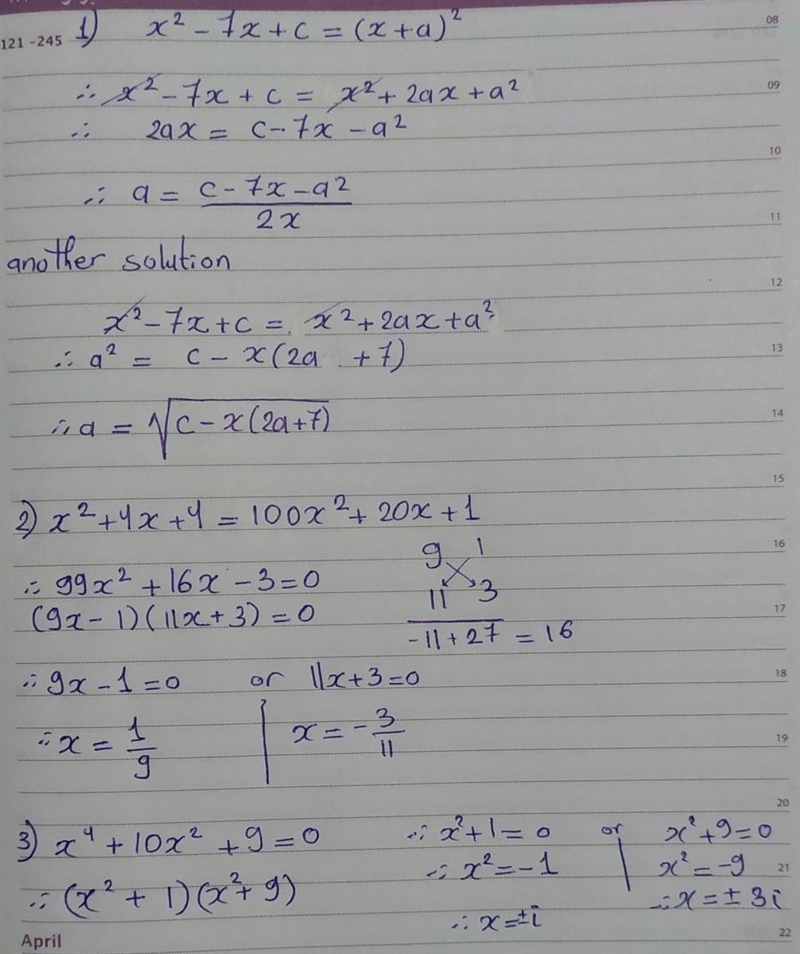 121 -245 1) x² - 7x + c = (x+a)² 08
∴ x² - 7x + c = x² + 2ax + a² 09
∴ 2ax = c - 7x - a²
10
∴ a = (c - 7x - a²) / 2x
11
another solution
12
x² - 7x + c = x² + 2ax + a²
∴ a² = c - x(2a + 7) 13
∴ a = √(c - x(2a+7)) 14
15
2) x² + 4x + 4 = 100x² + 20x + 1
16
9 1
∴ 99x² + 16x - 3 = 0
11 3
(9x - 1)(11x + 3) = 0 17
-11 + 27 = 16
∴ 9x - 1 = 0 or 11x + 3 = 0 18
∴ x = 1/9 x = - 3/11
19
20
3) x⁴ + 10x² + 9 = 0 ∴ x² + 1 = 0 or x² + 9 = 0
∴ x² = -1 x² = -9 21
∴ (x² + 1)(x² + 9) ∴ x = ± i ∴ x = ± 3i
April 22